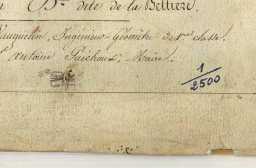 n B.ne dite de la Bellière.
auquelin, Ingénieur Géomètre de 1.ere classe.
Antoine Paichoux, Maire.
1/2500